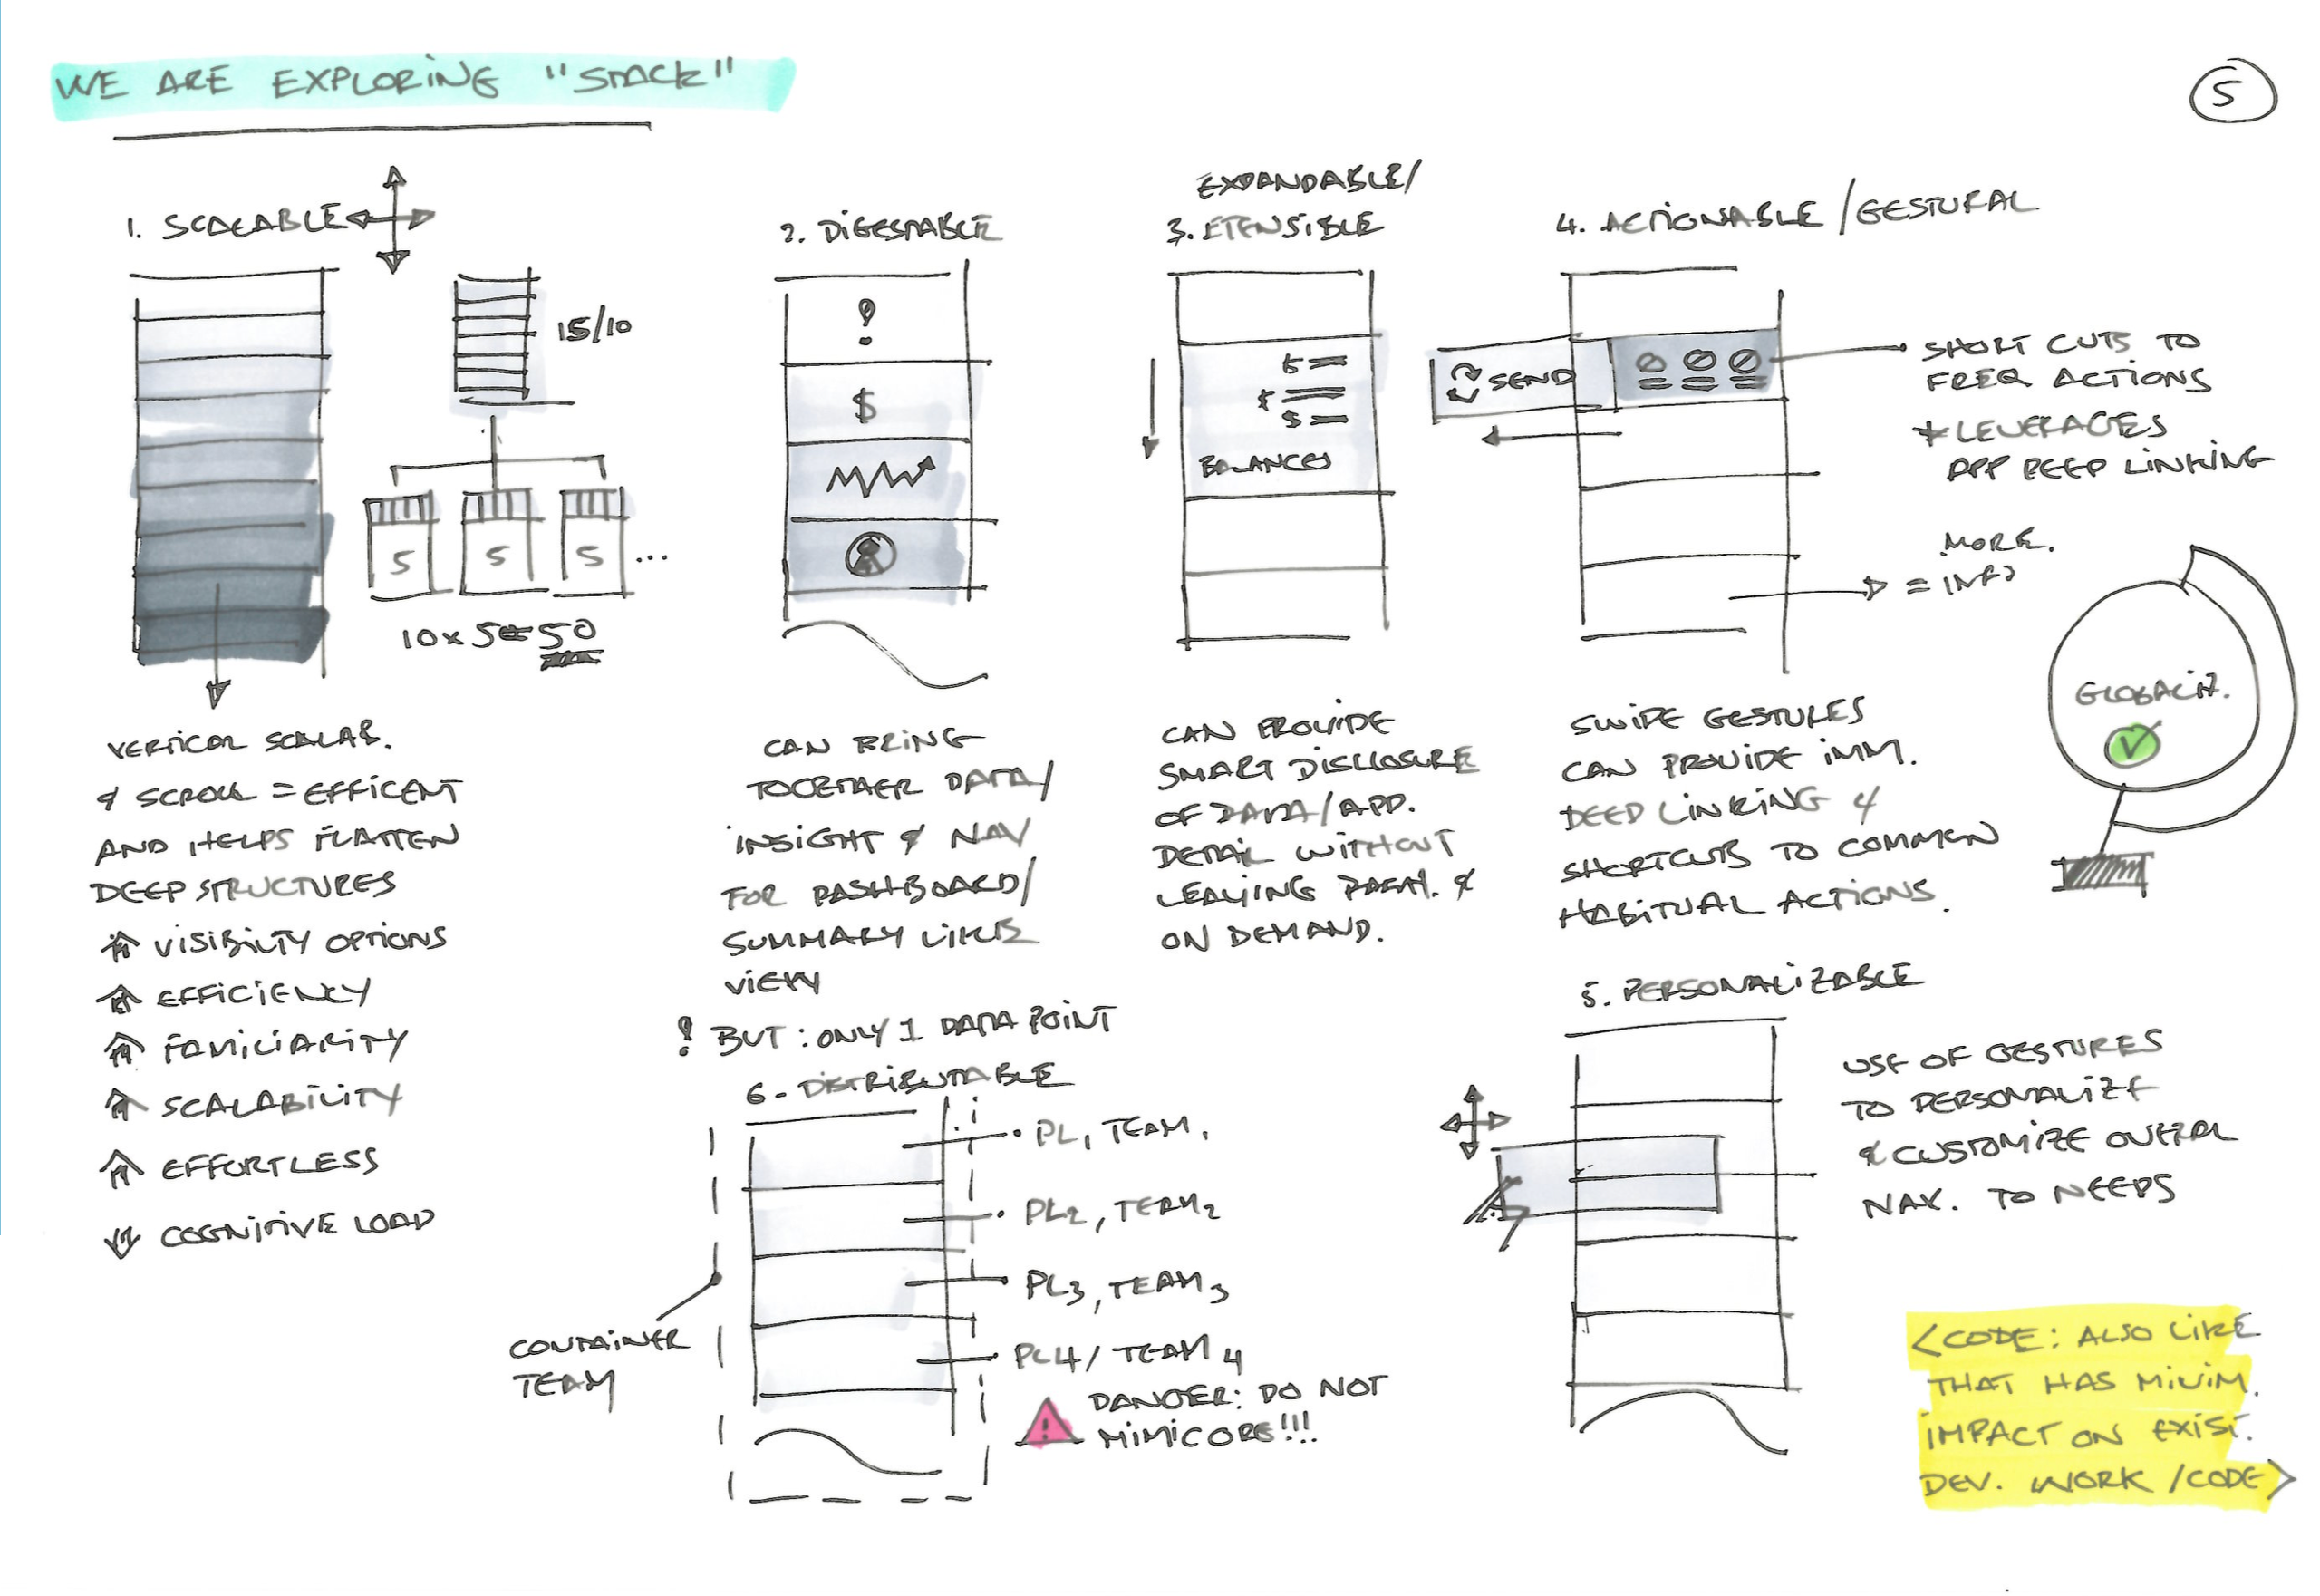 WE ARE EXPLORING "STACK"
5
1. SCALABLE
15/10
5 5 5 ...
10 x 5 = 50
VERTICAL SCALAB.
& SCROLL = EFFICENT
AND HELPS FLATTEN
DEEP STRUCTURES
⇑ VISIBILTY OPTIONS
⇑ EFFICIENCY
⇑ FAMILIARITY
⇑ SCALABILITY
⇑ EFFORTLESS
⇓ COGNITIVE LOAD
2. DIGESTABLE
!
$
CAN BRING
TOGETHER DATA/
INSIGHT & NAV
FOR DASHBOARD/
SUMMARY LIKE
VIEW
! BUT: ONLY 1 DATA POINT
EXPANDABLE/
3. ETENSIBLE
$ =
$ =
$ =
BALANCES
CAN PROVIDE
SMART DISCLOSURE
OF DATA/APP.
DETAIL WITHOUT
LEAVING &
ON DEMAND.
4. ACTIONABLE/GESTURAL
SEND
SHORT CUTS TO
FREQ ACTIONS
* LEVERAGES
APP DEEP LINKING
MORE.
= INFO
SWIPE GESTURES
CAN PROVIDE IMM.
DEEP LINKING &
SHORTCUTS TO COMMON
HABITUAL ACTIONS.
GLOBALIZ.
5. PERSONALIZABLE
USE OF GESTURES
TO PERSONALIZE
& CUSTOMIZE OVERAL
NAV. TO NEEDS
6 - DISTRIBUTABLE
PL1, TEAM1
PL2, TEAM2
PL3, TEAM3
PL4/ TEAM4
CONTAINER
TEAM
DANGER: DO NOT
MIMIC ORG!!!
<CODE: ALSO LIKE
THAT HAS MINIM.
IMPACT ON EXIST.
DEV. WORK /CODE>